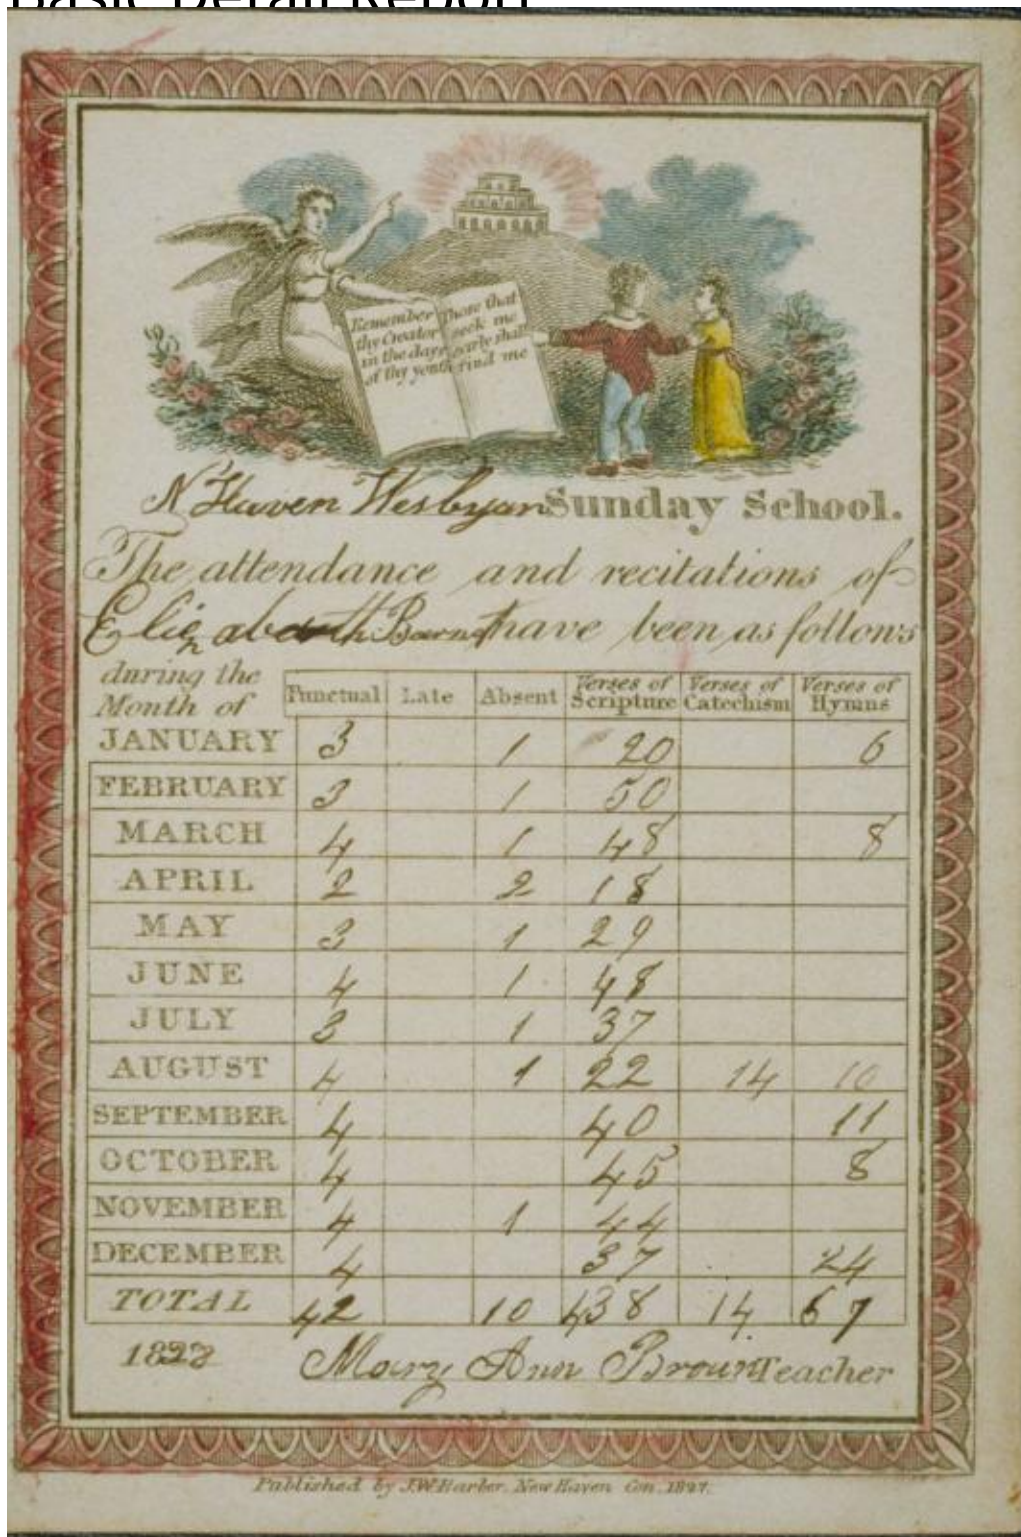 Basic Detail Report
Remember
thy Creator
in the days
of thy youth
Those that
seek me
early shall
find me
N Haven Wesleyan Sunday School.
The attendance and recitations of
Elizabeth Barnes have been as follows
during the
Month of Punctual Late Absent Verses of Scripture Verses of Catechism Verses of Hymns
JANUARY 3 1 20 6
FEBRUARY 3 1 50
MARCH 4 1 48 8
APRIL 2 2 18
MAY 3 1 29
JUNE 4 1 48
JULY 3 1 37
AUGUST 4 1 22 14 10
SEPTEMBER 4 40 11
OCTOBER 4 45 8
NOVEMBER 4 1 44
DECEMBER 4 37 24
TOTAL 42 10 438 14 67
1828 Mary Ann Brown Teacher
Published by J.W. Barber, New Haven Con. 1827.